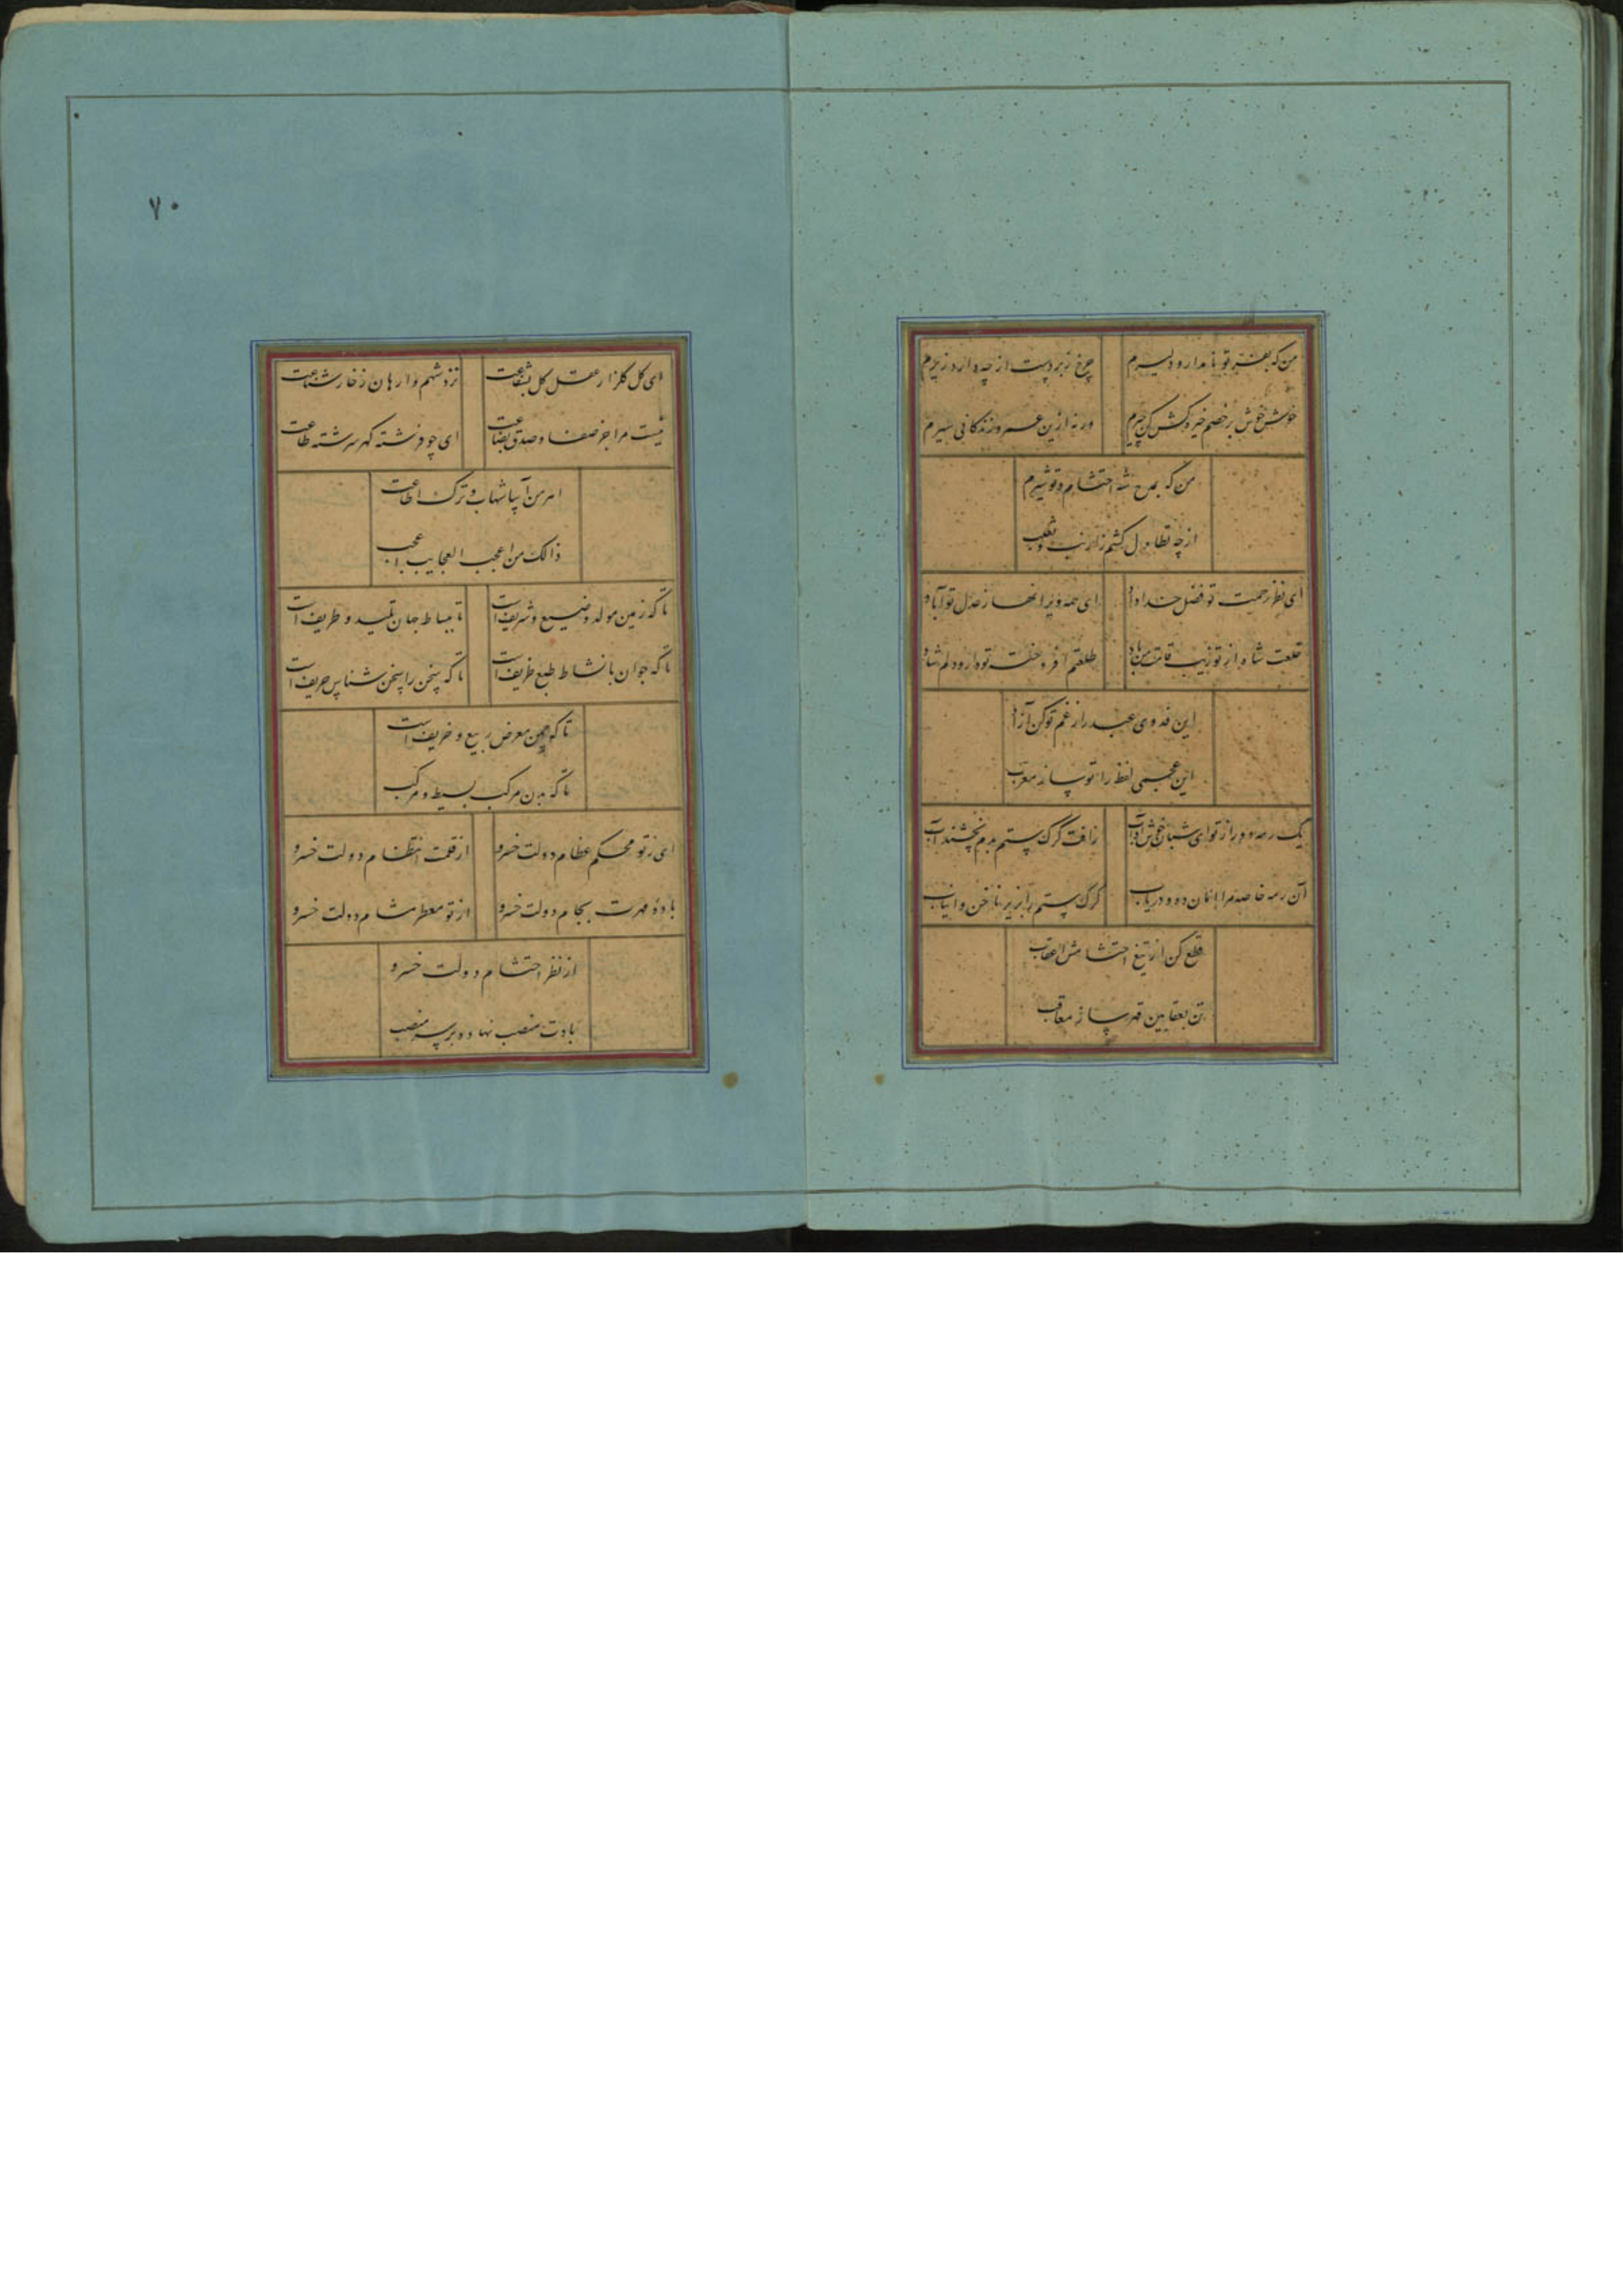 من که بفر تو نامدار و دلیرم
چرخ زبردست از چه دارد زیرم
خوش خوش بر خصم خیره کش کن چیرم
ورنه ازین عمر و زندگانی سیرم
من که بمدح شه احتشام و تو شیرم
از چه تطاول کشم ز ارنب و ثعلب
ای نظر رحمت تو فضل خداداد
ای همه ویرانها ز عدل تو آباد
خلعت شاه از تو زیب قامت من باد
طلعتم افروخت تو دارد دلم شاد
این فدوی عبد را ز غم تو کن آزاد
این عجمی لفظ را تو ساز معرب
یک رمه دور از تو ای شبان خوش آداب
زافت گرگ ستم بدم نچشند آب
آن رمه خاصه مرا بامان ده و دریاب
گرگ ستم را بزیر ناخن و انیاب
قطع کن از تیغ احتشامش اعقاب
تن بعقابین قهر ساز معاقب
۷۰
ای گل گلزار عقل کل بشفاعت
نزد شهم وارهان ز خار شناعت
نیست مرا جز صفا و صدق بضاعت
ای چو فرشته گهر سرشته طاعت
امر من آسا شهاب و ترک اطاعت
ذالک من اعجب العجایب اعجب
تا که زمین مولد وضیع و شریف است
تا ببساط جهان تلید و طریف است
تا که جوان بانشاط طبع ظریف است
تا که سخن را سخن شناس حریف است
تا که چمن معرض ربیع و خریف است
تا که بدن مرکب بسیط و مرکب
ای ز تو محکم عظام دولت خسرو
از قلمت انتظام دولت خسرو
باده مهرت بجام دولت خسرو
از تو معطر مشام دولت خسرو
از نظر احتشام دولت خسرو
بادت منصب نهاده بر سر منصب